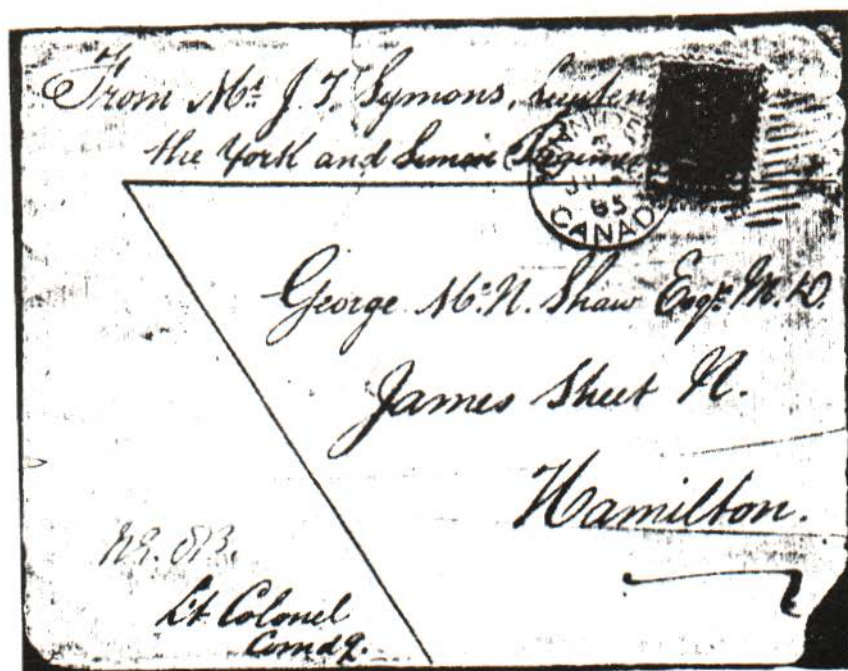 From Mr. J. T. Symons, Lieuten
the York and Simcoe Regimen
CANAD
85
George Mc.N. Shaw Esqr. M.D.
James Street N.
Hamilton.
Lt Colonel
Comdg.